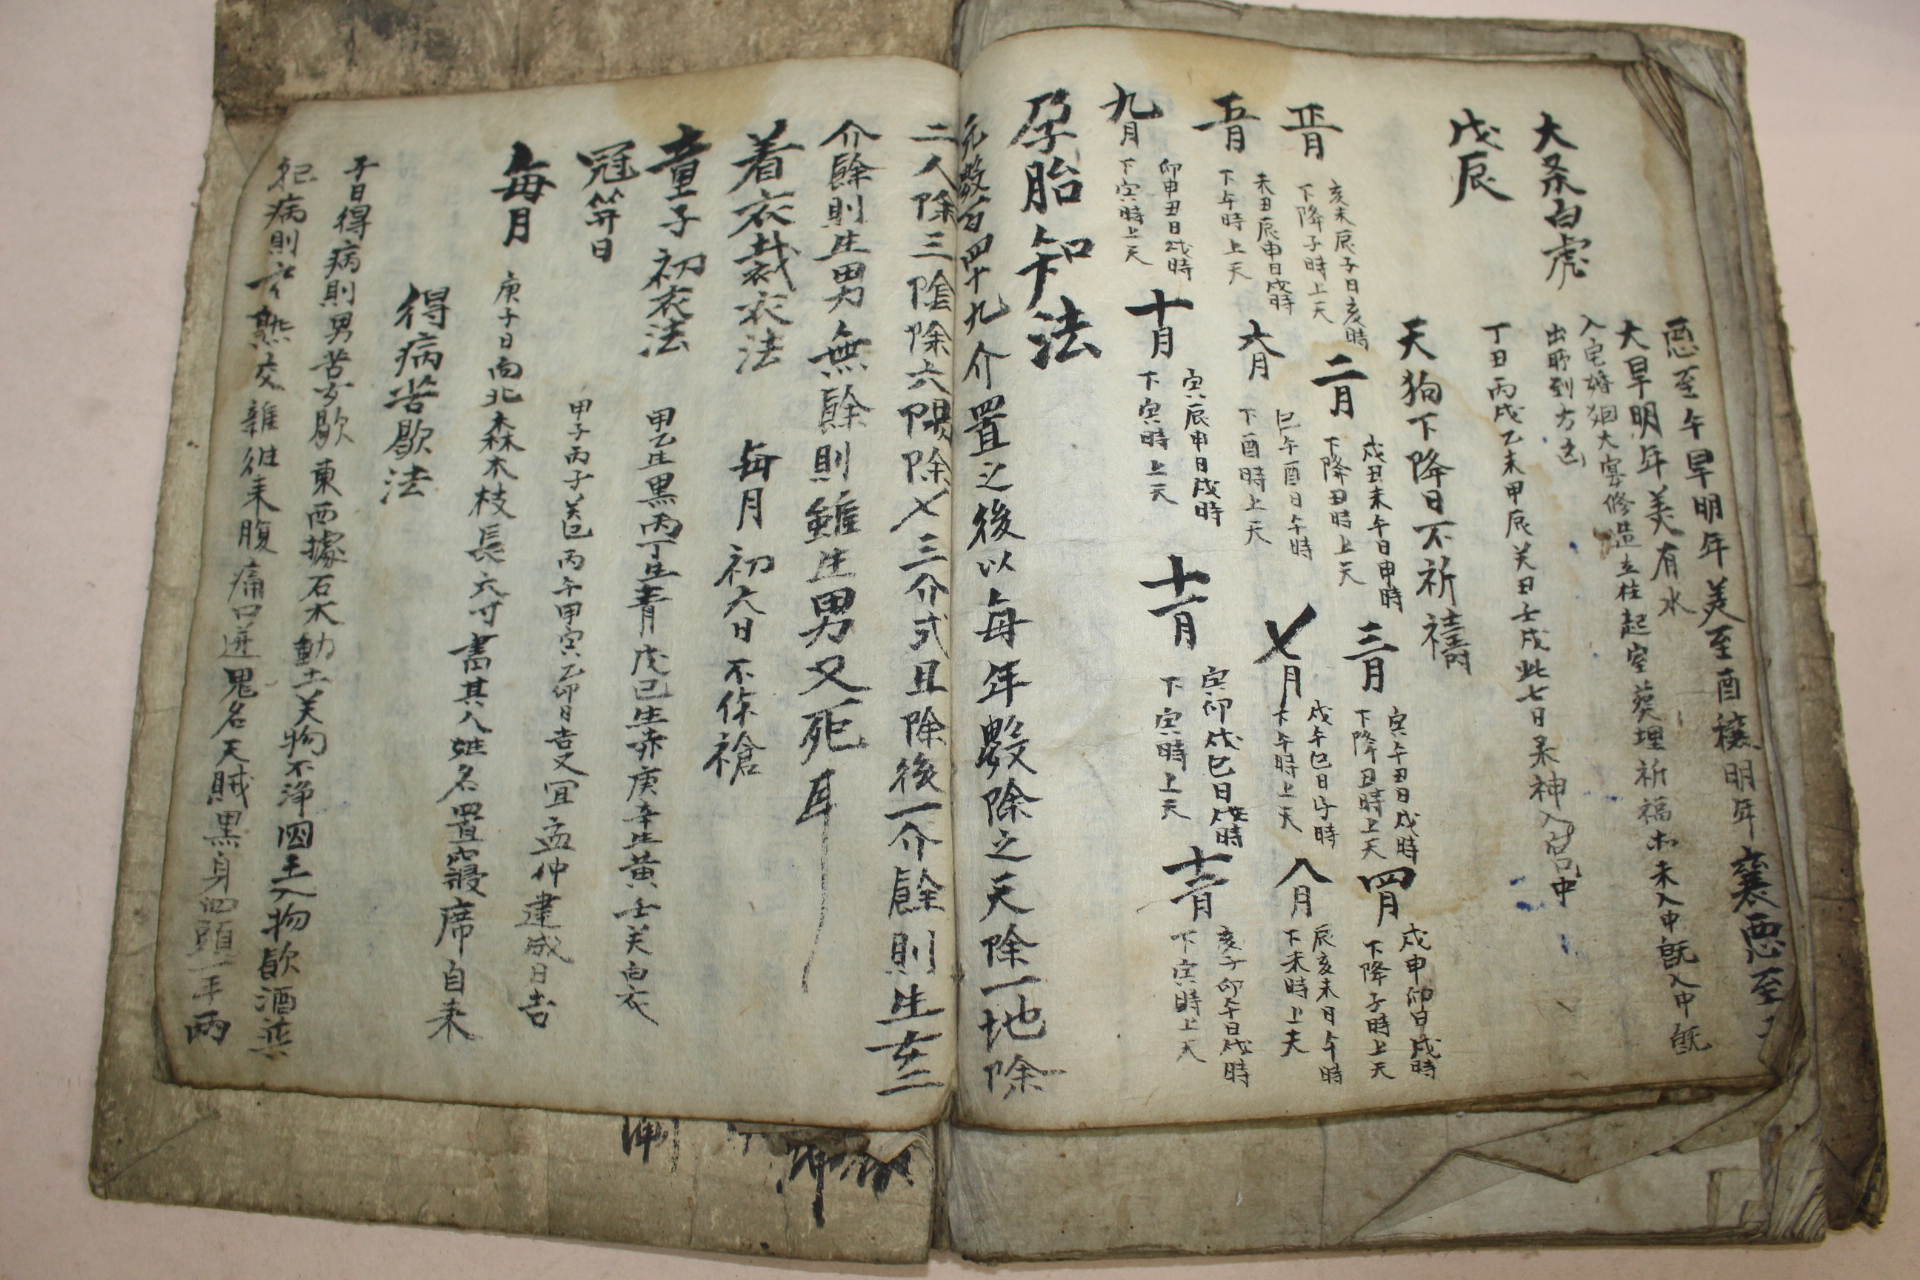 悪至午旱明年美至酉穰明年襄悪至
大旱明年美有水
入宅婚姻大宴修造立柱起室葬埋祈福
大杀白虎
戊辰
丁丑丙戌乙未甲辰癸丑壬戌此七日杀神入
天狗下降日不祈禱
正月 亥未辰子日亥時下降子時上天
二月 戌丑未午日申時下降丑時上天
三月 寅午丑日戌時下降丑時上天
四月 戌申卯日戌時下降子時上天
五月 未丑辰申日戌時下午時上天
六月 巳午酉日午時下酉時上天
七月 戌午巳日午時下午時上天
八月 辰亥未日午時下未時上天
九月 卯申丑日戌時下寅時上天
十月 寅辰申日戌時下寅時上天
十一月 寅卯戌巳日戌時下寅時上天
十二月 亥子卯午日戌時下寅時上天
孕胎知法
元數百四十九介置之後以每年數除之天除一地除
二人除三陰除六陽除七三介式且除後一介餘則生女二
介餘則生男無餘則雖生男又死耳
着衣裁衣法 每月初六日不作禬
童子初衣法 甲乙生黑丙丁生青戊己生赤庚辛生黃壬癸白衣
冠笄日 甲子丙子癸巳丙午甲寅乙卯日吉又宜孟仲建成日吉
每月 庚子日向北森木枝長六寸書其人姓名置寢席自來
得病苦歇法
子日得病則男苦女歇東西據石木動土关物不淨図土入物飮酒
病則 熟交雜往來腹痛口迸鬼名天賊黑身四頭一手兩